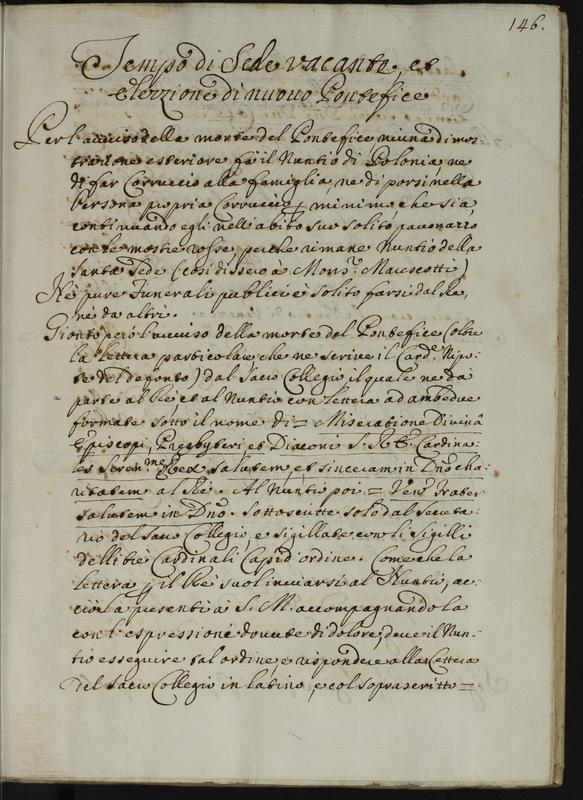 146.
Tempo di Sede vacante, et
Elezzione di nuovo Pontefice
Per l'avviso della morte del Pontefice, niuna dimos-
trazione esteriore fà il Nuntio di Polonia, ne
di far Corruccio alla famiglia, ne di porsi nella
persona propria Corruccio minimo che sia
continuando egli nell'abito suo solito paonazzo
con le mostre rosse perche rimane Nuntio della
Santa Sede (così disse à Mons.r Marescotti)
Nè pure Funerali publici è solito farsi dal Re,
nè da altri.
Gionto però l'avviso della morte del Pontefice (oltre
la lettera particolare che ne scrive il Card.e Nipo-
te del defonto) dal Sacro Collegio il quale ne dà
parte al Rè et al Nuntio con lettera ad ambedue
formate sotto il nome di = Miseratione Divinâ
Episcopi, Presbyteri et Diaconi S. R. E. Cardina-
les Seren.me Rex salutem, et sinceram in Dño cha-
ritatem al Rè. Al Nuntio poi = Ven. Frater
salutem in Dño. Sottoscritte solo dal Secreta-
rio del Sacro Collegio, e sigillate con li sigilli
delli trè Cardinali Capi d'ordine. Come che la
lettera p il Rè suol inviarsi al Nuntio, ac-
ciò la presenti à S. M. accompagnandola
con l'espressioni dovute di dolore, deve il Nun-
tio esseguire tal ordine, e rispondere alla lettera
del Sacro Collegio in latino, e col soprascritto =